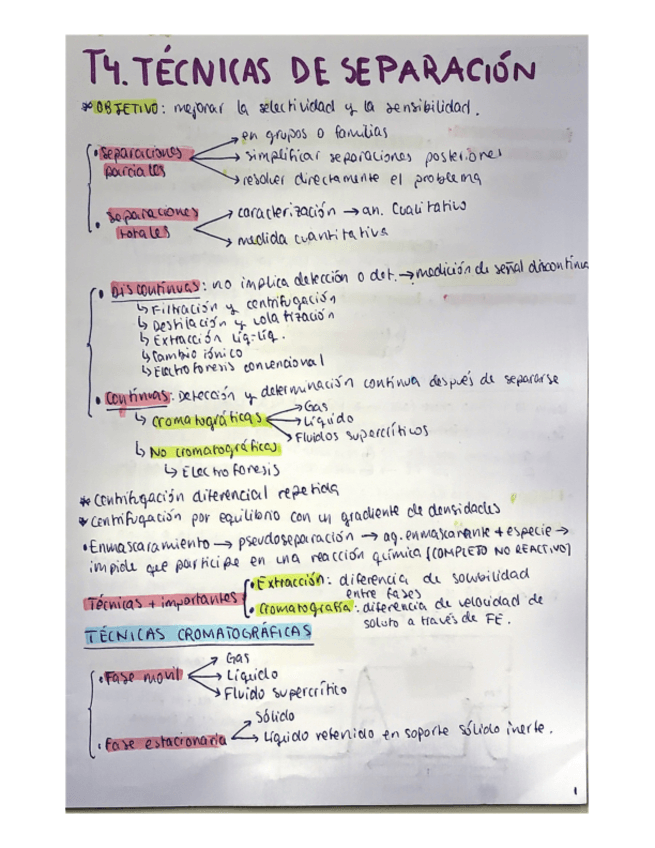 T4. TÉCNICAS DE SEPARACIÓN
* OBJETIVO: mejorar la selectividad y la sensibilidad.
• Separaciones parciales
→ en grupos o familias
→ simplificar separaciones posteriores
→ resolver directamente el problema
• Separaciones totales
→ caracterización → an. Cualitativo
→ medida cuantitativa
• Discontinuas: no implica detección o det. → medición de señal discontinua
↳ Filtración y centrifugación
↳ Destilación y volatización
↳ Extracción líq-líq.
↳ Cambio iónico
↳ Electroforesis convencional
• Continuas: Detección y determinación continua después de separarse
↳ cromatográficas
→ Gas
→ Líquido
→ Fluidos supercríticos
↳ No cromatográficas
↳ Electroforesis
* Centrifugación diferencial repetida
* Centrifugación por equilibrio con un gradiente de densidades
• Enmascaramiento → pseudoseparación → ag. enmascarante + especie →
impide que participe en una reacción química (COMPLEJO NO REACTIVO)
Técnicas + importantes
• Extracción: diferencia de solubilidad
entre fases
• Cromatografía: diferencia de velocidad de
soluto a través de FE.
TÉCNICAS CROMATOGRÁFICAS
• Fase movil
→ Gas
→ Líquido
→ Fluido supercrítico
• Fase estacionaria
→ Sólido
→ Líquido retenido en soporte sólido inerte.
1